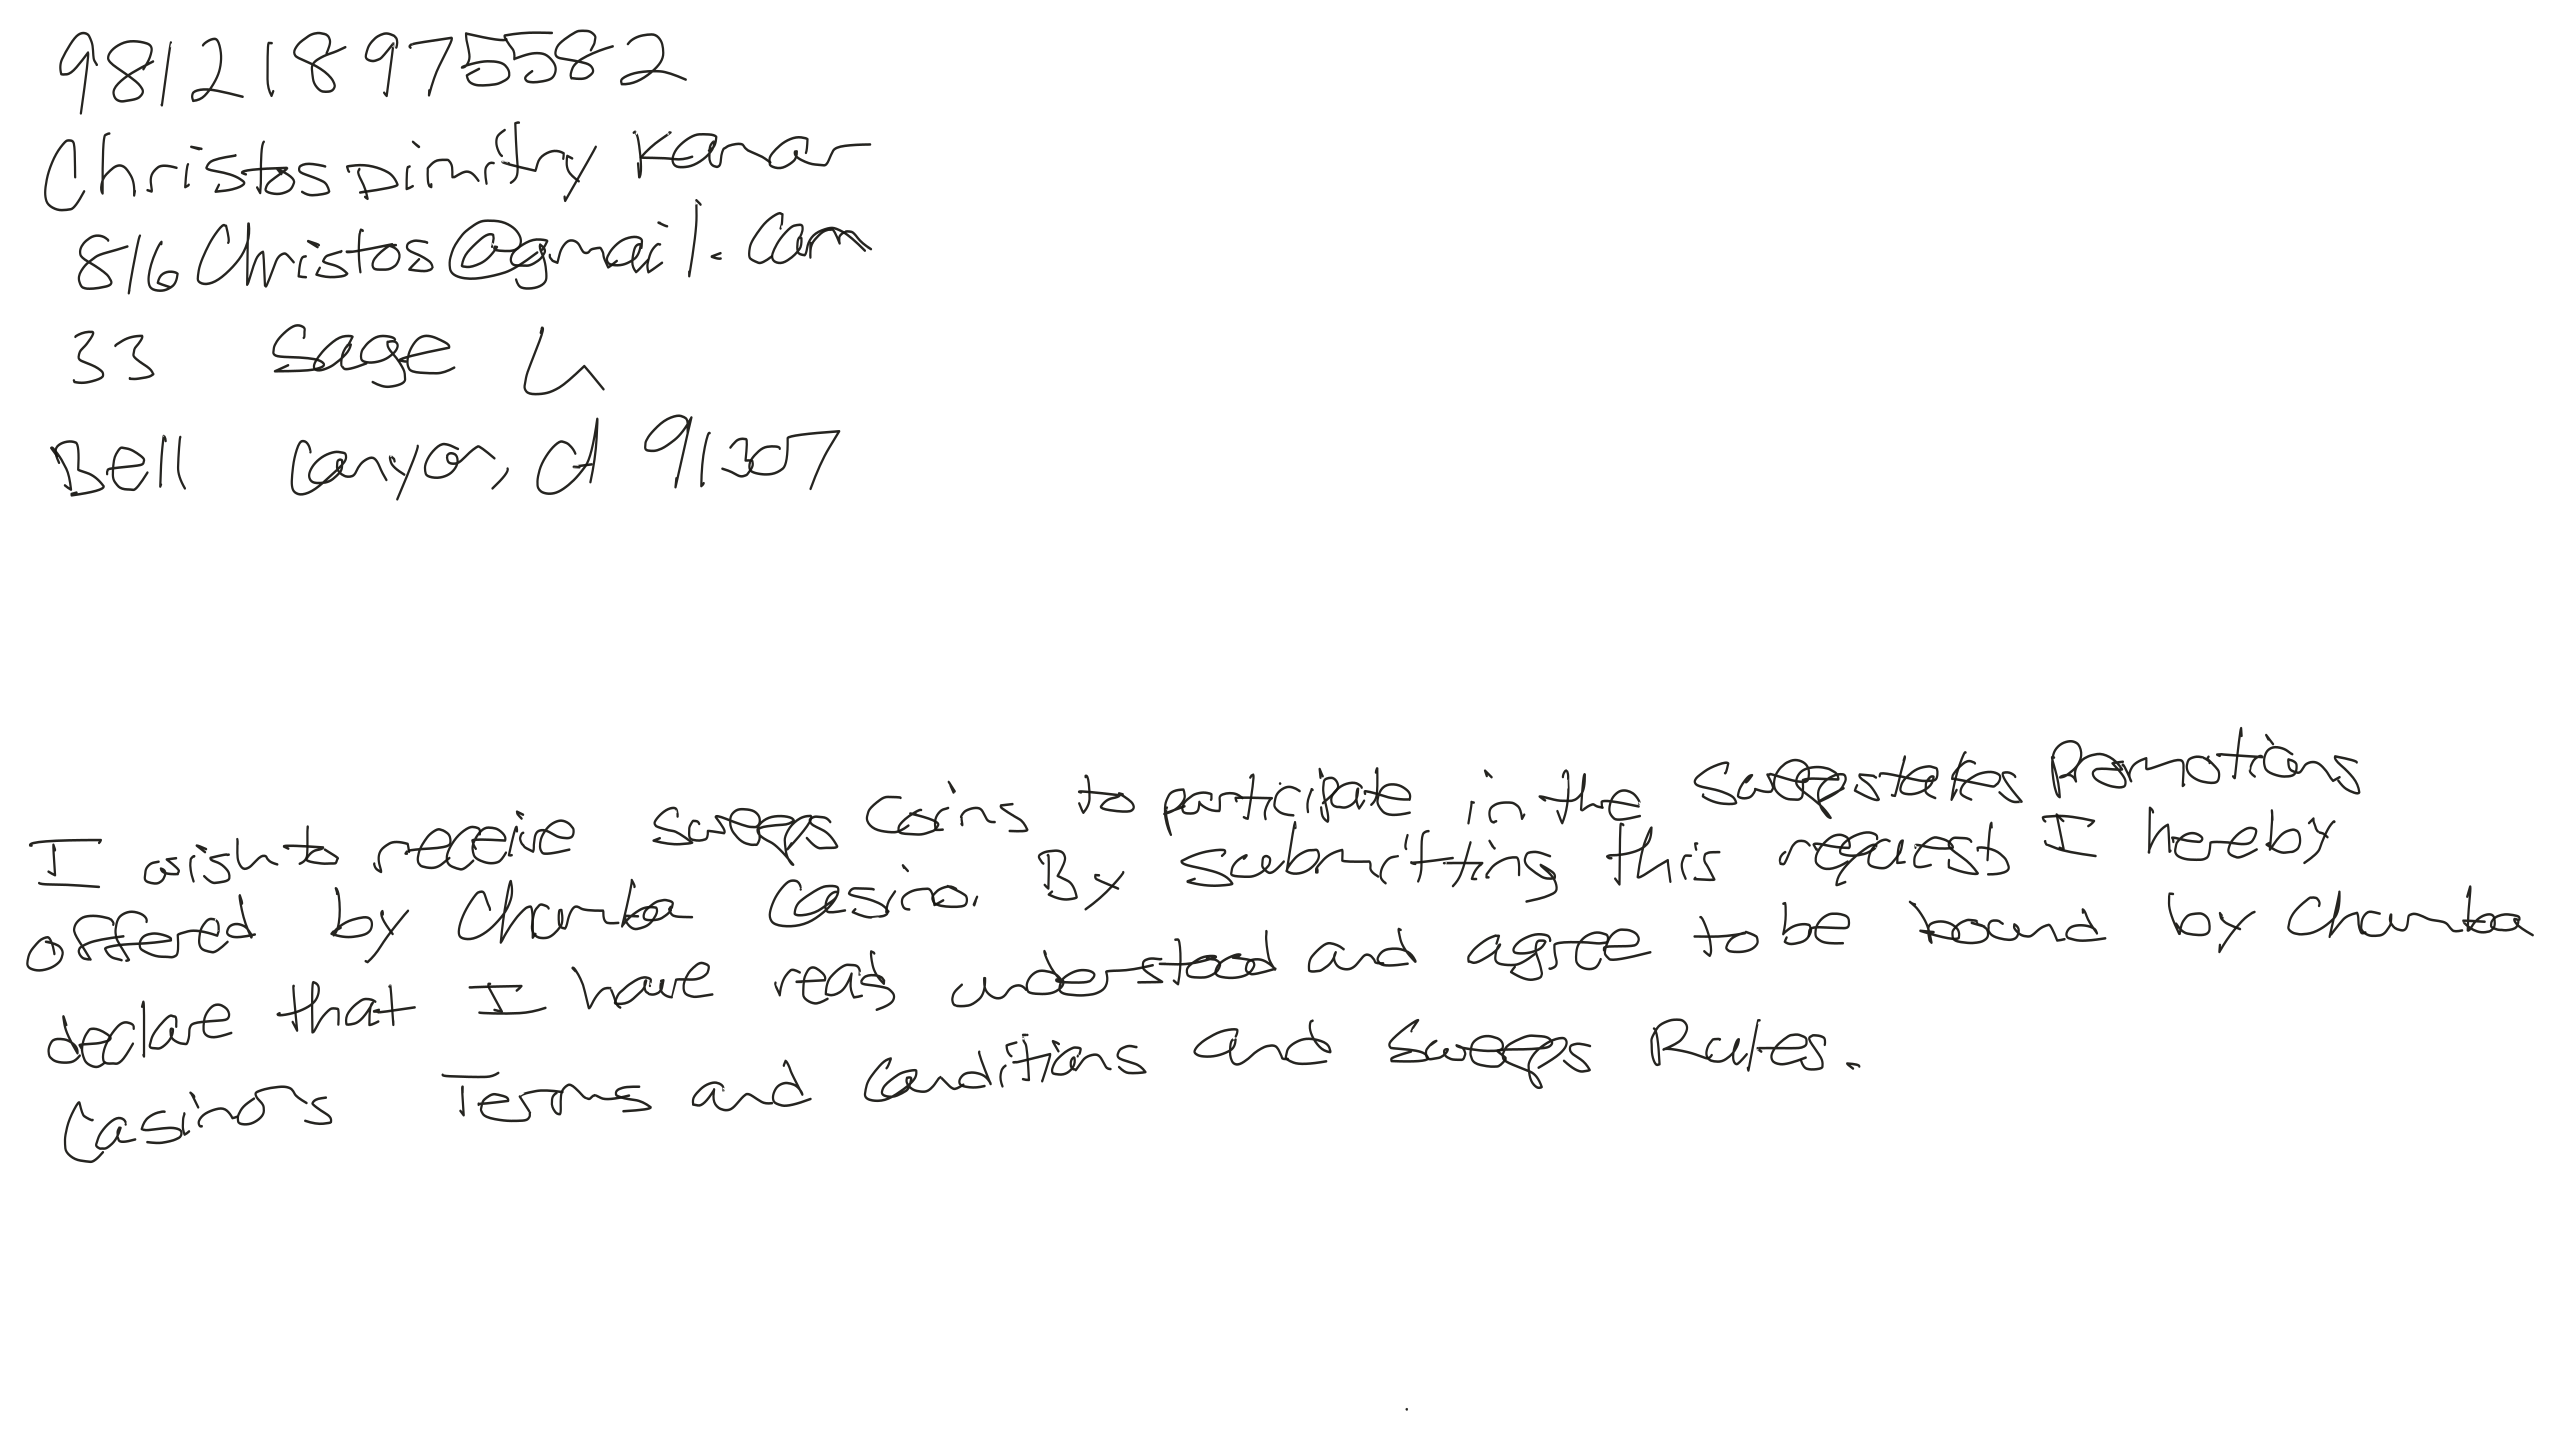 981218975582
Christos Dimitry Kanar
816Christos@gmail.com
33 Sage Ln
Bell Canyon, CA 91307
I wish to receive sweeps coins to participate in the sweepstakes promotions
offered by Chumba Casino. By submitting this request I hereby
declare that I have read understood and agree to be bound by Chumba
Casinos Terms and Conditions and Sweeps Rules.